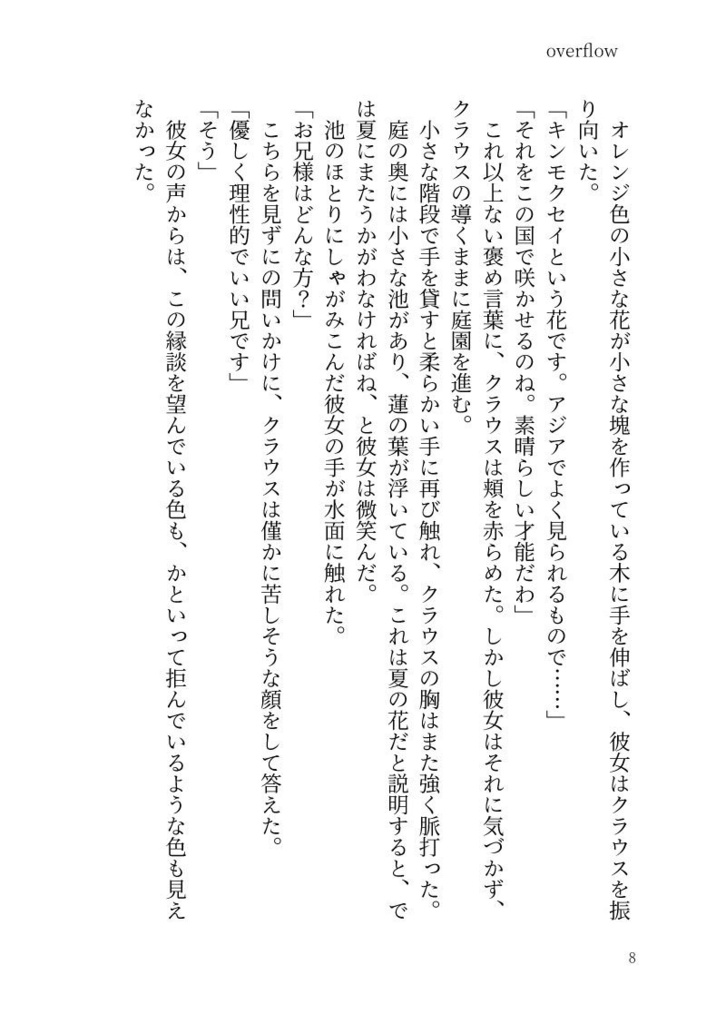 overflow
　オレンジ色の小さな花が小さな塊を作っている木に手を伸ばし、彼女はクラウスを振
り向いた。
「キンモクセイという花です。アジアでよく見られるもので……」
「それをこの国で咲かせるのね。素晴らしい才能だわ」
　これ以上ない褒め言葉に、クラウスは頬を赤らめた。しかし彼女はそれに気づかず、
クラウスの導くままに庭園を進む。
　小さな階段で手を貸すと柔らかい手に再び触れ、クラウスの胸はまた強く脈打った。
　庭の奥には小さな池があり、蓮の葉が浮いている。これは夏の花だと説明すると、で
は夏にまたうかがわなければね、と彼女は微笑んだ。
　池のほとりにしゃがみこんだ彼女の手が水面に触れた。
「お兄様はどんな方？」
　こちらを見ずにの問いかけに、クラウスは僅かに苦しそうな顔をして答えた。
「優しく理性的でいい兄です」
「そう」
　彼女の声からは、この縁談を望んでいる色も、かといって拒んでいるような色も見え
なかった。
8